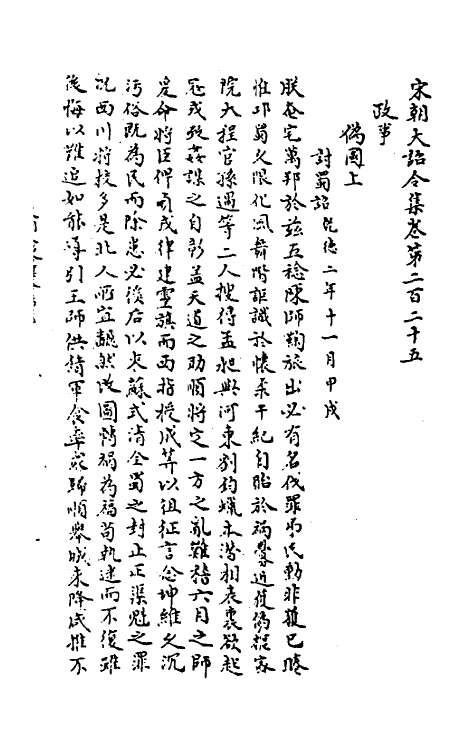 宋朝大詔令集卷第二百二十五
政事
僞國上
討蜀詔乾德二年十一月甲戌
朕奄宅萬邦於兹五稔陳師鞠旅出必有名伐罪弔民動非獲已睠
惟邛蜀久限化風舞階詎識於懷柔干紀自貽於禍釁近獲僞樞密
院大程官孫遇等二人搜得孟昶與河東劉鈞蠟末潜相表裏欲起
冦戎致姦謀之自彰盖天道之助順將定一方之亂難稽六月之師
爰命將臣俾司戎律建靈旗而西指授成筭以徂征言念坤維久沉
污俗既為民而除患必後后以來蘇式清全蜀之封止正渠魁之罪
況西川將校多是北人所宜飜然改圖轉禍為福苟執迷而不復雖
後悔以難追如能導引王師供精軍食率衆歸順舉城來降咸推不